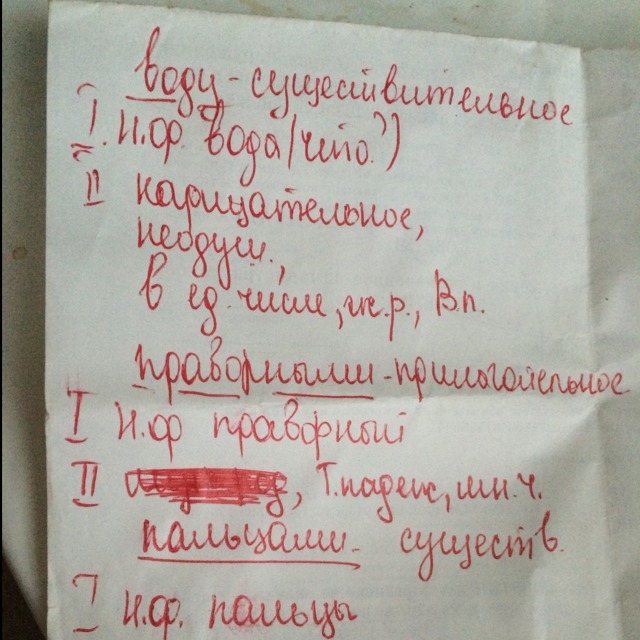 воду - существительное
I. Н.ф. вода (что?)
II нарицательное,
неодуш.,
в ед. числе, ж.р., В.п.
проворными - прилагательное
I Н.ф проворный
II , Т.падеж, мн.ч.
пальцами - существ.
I Н.ф. пальцы